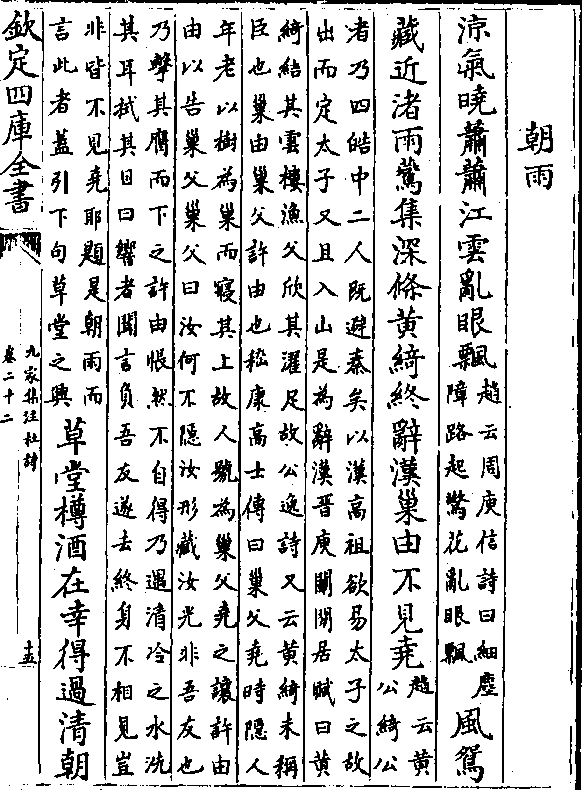 朝雨
涼氣曉蕭蕭江雲亂眼飄趙云周庾信詩曰細塵障路起驚花亂眼飄風鴛
藏近渚雨鷰集深條黄綺終辭漢巢由不見堯趙云黄公綺公
者乃四皓中二人既避秦矣以漢高祖欲易太子之故
出而定太子又且入山是為辭漢晉庾闡閑居賦曰黄
綺結其雲棲漁父欣其濯足故公逸詩又云黄綺未稱
臣也巢由巢父許由也嵇康高士傳曰巢父堯時隠人
年老以樹為巢而寢其上故人號為巢父堯之讓許由
由以告巢父巢父曰汝何不隠汝形藏汝光非吾友也
乃擊其膺而下之許由悵然不自得乃過清冷之水洗
其耳拭其目曰嚮者聞言負吾友遂去終身不相見豈
非皆不見堯耶題是朝雨而
言此者蓋引下句草堂之興
草堂樽酒在幸得過清朝
欽定四庫全書
九家集注杜詩
卷二十二
十五